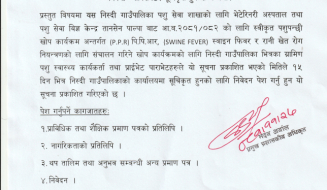 प्रस्तुत विषयमा यस निस्दी गाउँपालिका पशु सेवा शाखाको लागि भेटेरिनरी अस्पताल तथा
पशु सेवा बिज्ञ केन्द्र तानसेन पाल्पा बाट आ.व.२०८१/०८२ को लागि तपशिल
खोप कार्यक्रम अन्तर्गत (P.P.R) पि.पि.आर, (SWINE FEVER) स्वाइन फिबर र रानी खेत रोग
नियन्त्रणको लागी संचालन गरिने खोप कार्यक्रमको लागि निस्दी गाउँपालिका भित्रका ग्रामिण
पशु स्वास्थ्य कार्यकर्ता तथा प्राईभेट पाराभेटहरुले यो सूचना प्रकाशित भएको मितिले १५
दिन भित्र निस्दी गाउँपालिकाको कार्यालयमा सूचिकृत हुनको लागि निवेदन पेश गर्नु हुन यो
सूचना प्रकाशित गरिएको छ ।
पेश गर्नुपर्ने कागजातहरुः
१.प्राबिधिक तथा शैक्षिक प्रमाण पत्रको प्रतिलिपि ।
२. नागरिकताको प्रतिलिपि ।
३. थप तालिम तथा अनुभव सम्वन्धी अन्य प्रमाण पत्र ।
४.निवेदन ।
प्रमुख प्रशासकीय अधिकृत